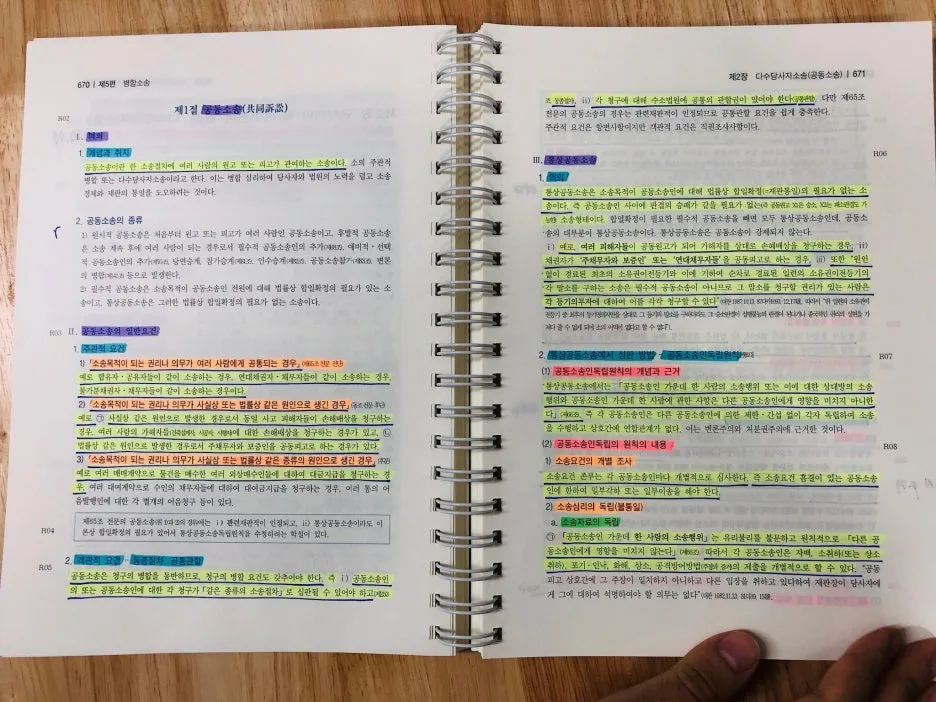 670 | 제5편 병합소송
제1절 공동소송(共同訴訟)
R02
Ⅰ. 의의
1. 개념과 취지
공동소송이란 한 소송절차에 여러 사람의 원고 또는 피고가 관여하는 소송이다. 소의 주관적
병합 또는 다수당사자소송이라고 한다. 이는 병합 심리하여 당사자와 법원의 노력을 덜고 소송
경제와 재판의 통일을 도모하려는 것이다.
2. 공동소송의 종류
1) 원시적 공동소송은 처음부터 원고 또는 피고가 여러 사람인 공동소송이고, 후발적 공동소송
은 소송 계속 후에 여러 사람이 되는 경우로서 필수적 공동소송인의 추가, 예비적·선택
적 공동소송인의 추가, 당연승계, 참가승계, 인수승계, 공동소송참가, 변론
의 병합 등으로 발생한다.
2) 필수적 공동소송은 소송목적이 공동소송인 전원에 대해 법률상 합일확정의 필요가 있는 소
송이고, 통상공동소송은 그러한 법률상 합일확정의 필요가 없는 소송이다.
R03
Ⅱ. 공동소송의 일반요건
1. 주관적 요건
1) 「소송목적이 되는 권리나 의무가 여러 사람에게 공통되는 경우」(제65조 전문 전단)
예로 합유자·공유자들이 같이 소송하는 경우, 연대채권자·채무자들이 같이 소송하는 경우,
불가분채권자·채무자들이 같이 소송하는 경우이다.
2) 「소송목적이 되는 권리나 의무가 사실상 또는 법률상 같은 원인으로 생긴 경우」(동조 전문 후단)
예로 ㉠ 사실상 같은 원인으로 발생한 경우로서 동일 사고 피해자들이 손해배상을 청구하는
경우, 여러 사람의 가해자들에 대한 손해배상을 청구하는 경우가 있고, ㉡
법률상 같은 원인으로 발생한 경우로서 주채무자와 보증인을 공동피고로 하는 경우가 있다.
3) 「소송목적이 되는 권리나 의무가 사실상 또는 법률상 같은 종류의 원인으로 생긴 경우」(후문)
예로 여러 매매계약으로 물건을 매수한 여러 외상매수인들에 대하여 대금지급을 청구하는 경
우, 여러 대여계약으로 수인의 채무자들에 대하여 대여금지급을 청구하는 경우, 여러 통의 어
음발행인에 대한 각 별개의 어음청구 등이 있다.
R04
제65조 전문의 공동소송(위 1)과 2)의 경우)에는 ⅰ) 관련재판적이 인정되고, ⅱ) 통상공동소송이라도 이
론상 합일확정의 필요가 있어서 통상공동소송독립원칙을 수정하려는 학설이 있다.
R05
2. 객관적 요건 동종절차, 공통관할
공동소송은 청구의 병합을 동반하므로, 청구의 병합 요건도 갖추어야 한다. 즉 ⅰ) 공동소송인
의 또는 공동소송인에 대한 각 청구가 「같은 종류의 소송절차」로 심판될 수 있어야 하고(제253
제2장 다수당사자소송(공동소송) | 671
조, 동종절차), ⅱ) 각 청구에 대해 수소법원에 공통의 관할권이 있어야 한다(공통관할). 다만 제65조
전문의 공동소송의 경우는 관련재판적이 인정되므로 공통관할 요건을 쉽게 충족한다.
주관적 요건은 항변사항이지만 객관적 요건은 직권조사사항이다.
R06
Ⅲ. 통상공동소송
1. 의의
통상공동소송은 소송목적이 공동소송인에 대해 법률상 합일확정(=재판통일)의 필요가 없는 소
송이다. 즉 공동소송인 사이에 판결의 승패가 같을 필요가 없는
소송형태이다. 합일확정이 필요한 필수적 공동소송을 빼면 모두 통상공동소송인데, 공동소
송의 대부분이 통상공동소송이다. 통상공동소송은 공동소송이 강제되지 않는다.
ⅰ) 예로, 여러 피해자들이 공동원고가 되어 가해자를 상대로 손해배상을 청구하는 경우, ⅱ)
채권자가 '주채무자와 보증인' 또는 '연대채무자들'을 공동피고로 하는 경우, ⅲ) 또한 "원인
없이 경료된 최초의 소유권이전등기와 이에 기하여 순차로 경료된 일련의 소유권이전등기의
각 말소를 구하는 소송은 필수적 공동소송이 아니므로 그 말소를 청구할 권리가 있는 사람은
각 등기의무자에 대하여 이를 각각 청구할 수 있다"
R07
2. 통상공동소송에서 심판 방법 / 공동소송인독립원칙
(1) 공동소송인독립원칙의 개념과 근거
통상공동소송에서는 「공동소송인 가운데 한 사람의 소송행위 또는 이에 대한 상대방의 소송
행위와 공동소송인 가운데 한 사람에 관한 사항은 다른 공동소송인에게 영향을 미치지 아니한
다」(제66조). 즉 각 공동소송인은 다른 공동소송인에 의한 제한·간섭 없이 각자 독립하여 소송
을 수행하고 상호간에 연합관계가 없다. 이는 변론주의와 처분권주의에 근거한 것이다.
R08
(2) 공동소송인독립의 원칙의 내용
1) 소송요건의 개별 조사
소송요건 존부는 각 공동소송인마다 개별적으로 심사한다. 즉 소송요건 흠결이 있는 공동소송
인에 한하여 일부각하 또는 일부이송을 해야 한다.
2) 소송심리의 독립(불통일)
a. 소송자료의 독립
㉠ 「공동소송인 가운데 한 사람의 소송행위」는 유리불리를 불문하고 원칙적으로 「다른 공
동소송인에게 영향을 미치지 않는다」(제66조). 따라서 각 공동소송인은 자백, 소취하(또는 상소
취하), 포기·인낙, 화해, 상소, 공격방어방법의 제출을 개별적으로 할 수 있다. "공동
피고 상호간에 그 주장이 일치하지 아니하고 다른 입장을 취하고 있다하여 재판장이 당사자에
게 그에 대하여 석명하여야 할 의무는 없다"